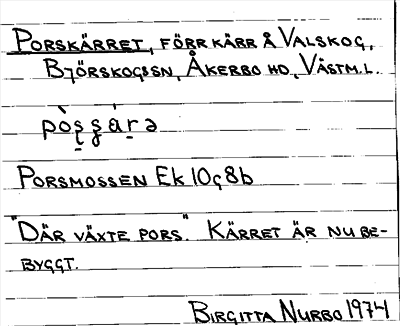 PORSKÄRRET, FÖRR KÄRR Å VALSKOG,
BJÖRSKOGSSN, ÅKERBO HD, VÄSTM.L.
pòʂʂárə
PORSMOSSEN EK 10g8b
"DÄR VÄXTE PORS." KÄRRET ÄR NU BE-
BYGGT.
BIRGITTA NURBO 1974